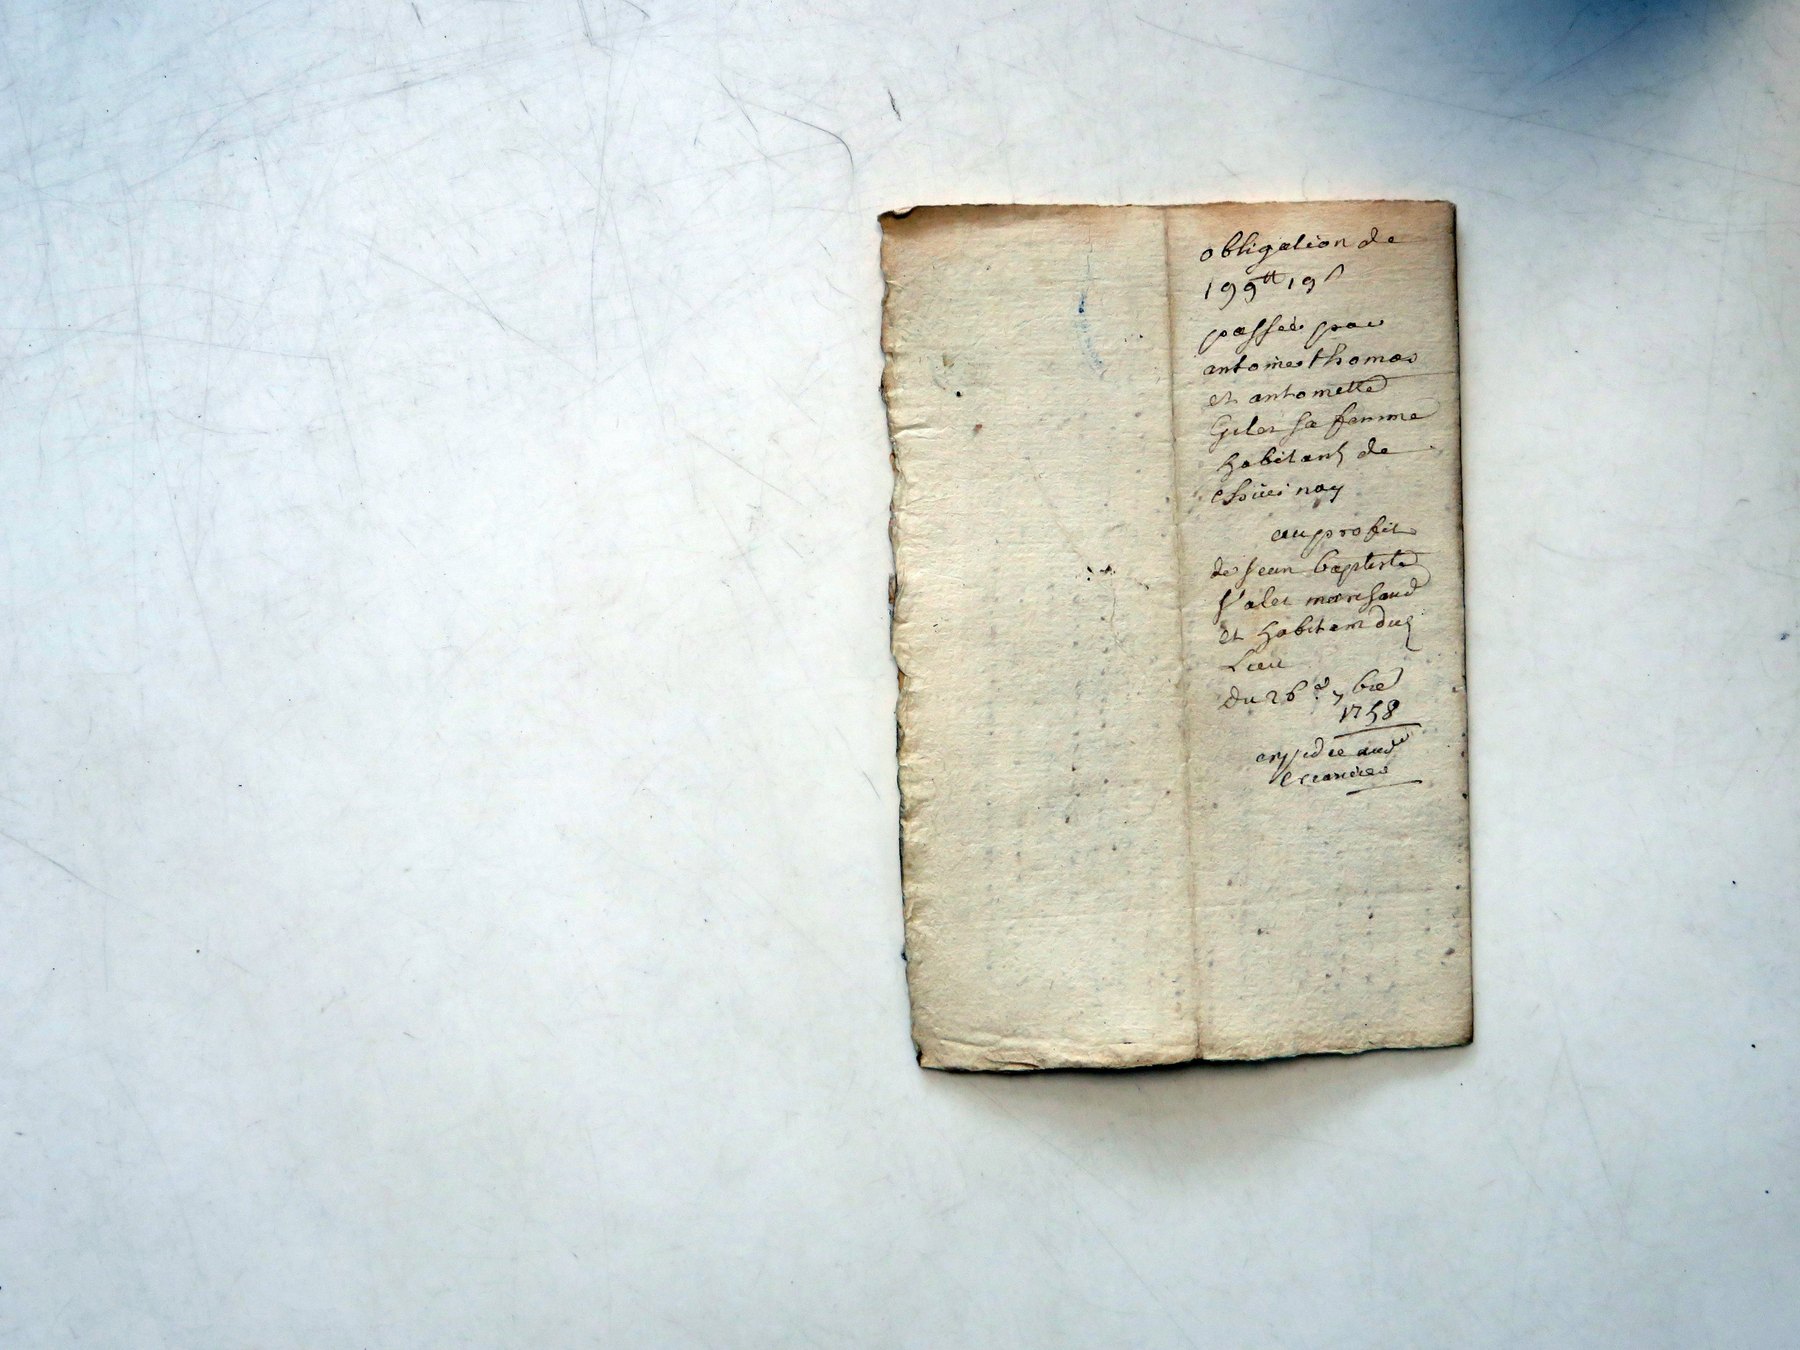 obligation de
199ᵗᵗ 19ˢ
passée par
antoine thomas
et antoinette
Gilet sa femme
habitans de
au profit
de jean baptiste
Valet marchand
et habitant dud
Lieu
du 26ᵉ 7bre
1758
expediée aud
Creancier